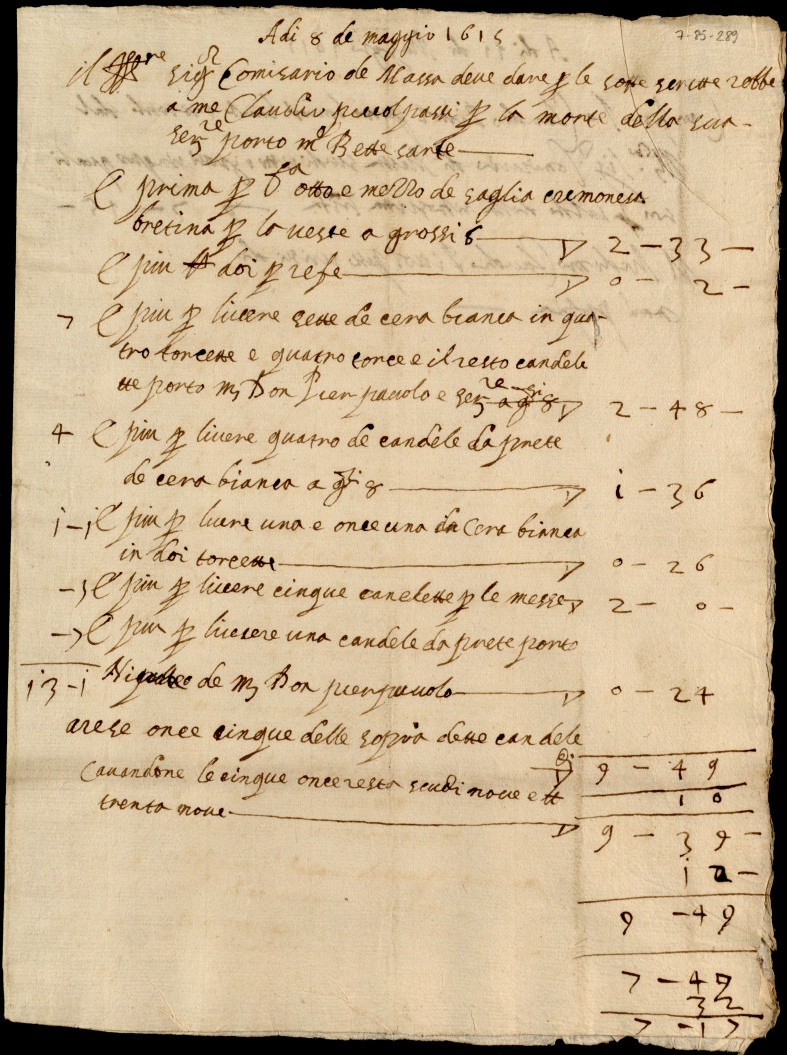 7-85-289
Adi 8 de maggio 1615
il sigr Comisario de Massa deve dare p le sotte scritte robbe
a me Claudio piccolpassi p la morte della sua
serre porto mo Bette sarte
E prima p ba otto e mezzo de saglia cremonesa
bretina p la veste a grossi 6 2 - 33 -
E piu doi p refe 0 - 2 -
7 E piu p livere sette de cera bianca in qua-
tro torcette e quatro torce e il resto candele
tte porto m Don Pier pauolo e serre a gri 8 2 - 48 -
4 E piu p livere quatro de candele da prete
de cera bianca a gri 8 i - 36
i - i E piu p livere una e once una da cera bianca
in doi torcette 0 - 26
- 5 E piu p livere cinque canelette p le messe 2 - 0 -
- 7 E piu p livere una candele da prete porto
i3 - i de m Don pierpauolo 0 - 24
arese once cinque delle sopra dette candele
9 - 49
Cavandone le cinque once resta scudi nove e
10
trenta nove 9 - 39 -
i2 -
9 - 49
7 - 49
32
7 - 17